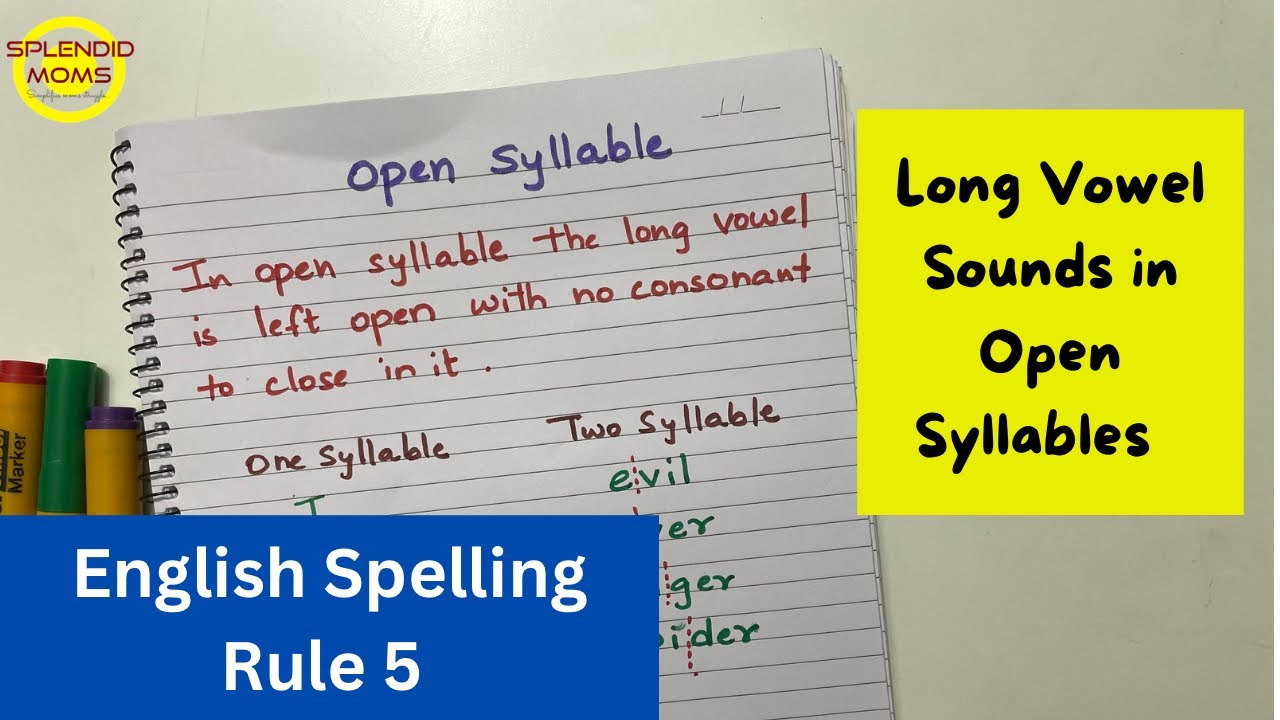 SPLENDID
MOMS
Simplifies moms struggle..
Open Syllable
In open syllable the long vowel
is left open with no consonant
to close in it.
One Syllable
Two Syllable
I
evil
ver
ger
ider
Marker
Long Vowel
Sounds in
Open
Syllables
English Spelling
Rule 5